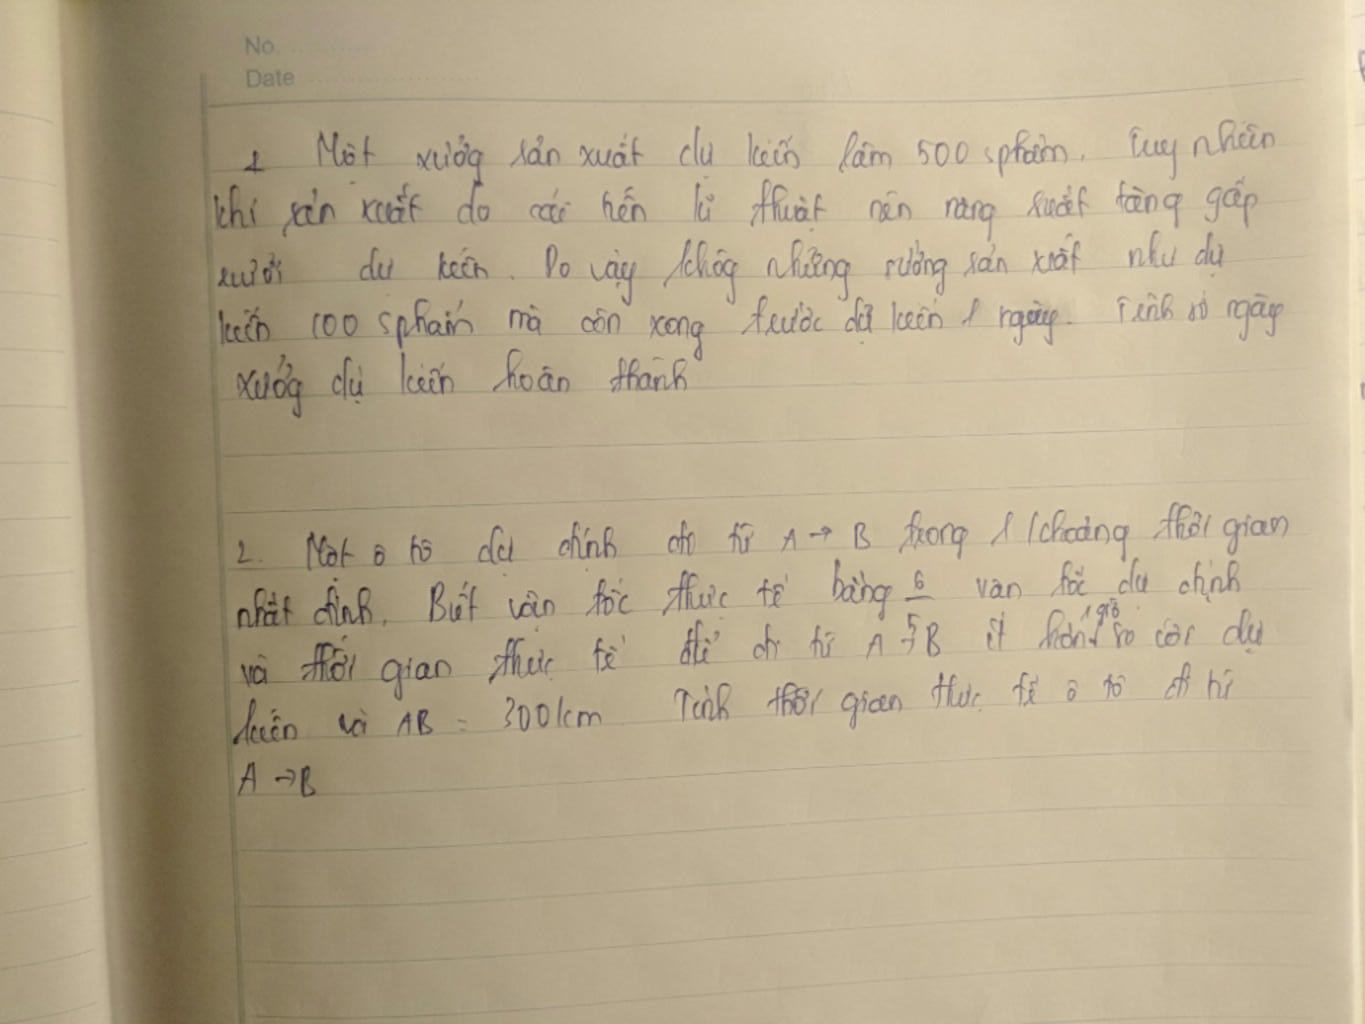 No.
Date
1 Một xưởng sản xuất dự kiến làm 500 sphẩm. Tuy nhiên
khi sản xuất do cải tiến kĩ thuật nên năng suất tăng gấp
rưỡi dự kiến. Do vậy khôg những xưởng sản xuất như dự
kiến 100 sphẩm mà còn xong trước dự kiến 1 ngày. Tính số ngày
xưởg dự kiến hoàn thành
2. Một ô tô dự định đi từ A → B trong 1 khoảng thời gian
nhất định. Biết vận tốc thực tế bằng 6/5 vận tốc dự định
và thời gian thực tế để đi từ A → B ít hơn 1 giờ so với dự
kiến và AB = 300km Tính thời gian thực tế ô tô đi từ
A → B